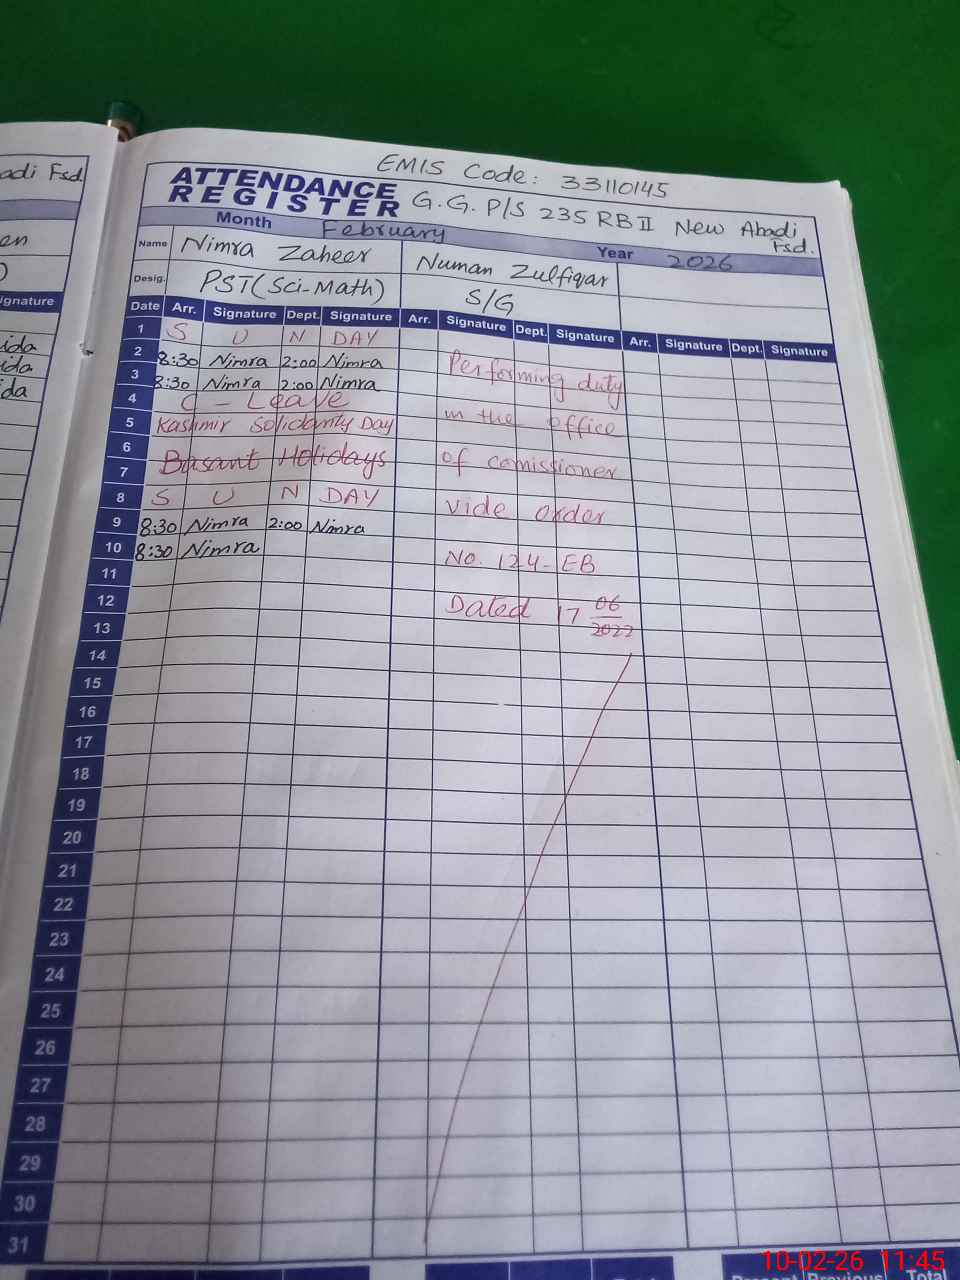 adi Fsd.
en
ignature
ida
ida
da
EMIS Code: 33110145
ATTENDANCE REGISTER G.G. P/S 235 RB II New Abadi Fsd.
Month February Year 2026
Name Nimra Zaheer Numan Zulfiqar
Desig. PST(Sci-Math) S/G
Date Arr. Signature Dept. Signature Arr. Signature Dept. Signature Arr. Signature Dept. Signature
1 S U N DAY
2 8:30 Nimra 2:00 Nimra Performing duty
3 8:30 Nimra 2:00 Nimra
4 C - Leave in the office
5 Kashmir Solidarity Day
6 Basant Holidays of comissioner
7
8 S U N DAY vide order
9 8:30 Nimra 2:00 Nimra
10 8:30 Nimra No. 124-EB
11
12 Dated 17 06 2022
13
14
15
16
17
18
19
20
21
22
23
24
25
26
27
28
29
30
31
Previous Total
10-02-26 11:45